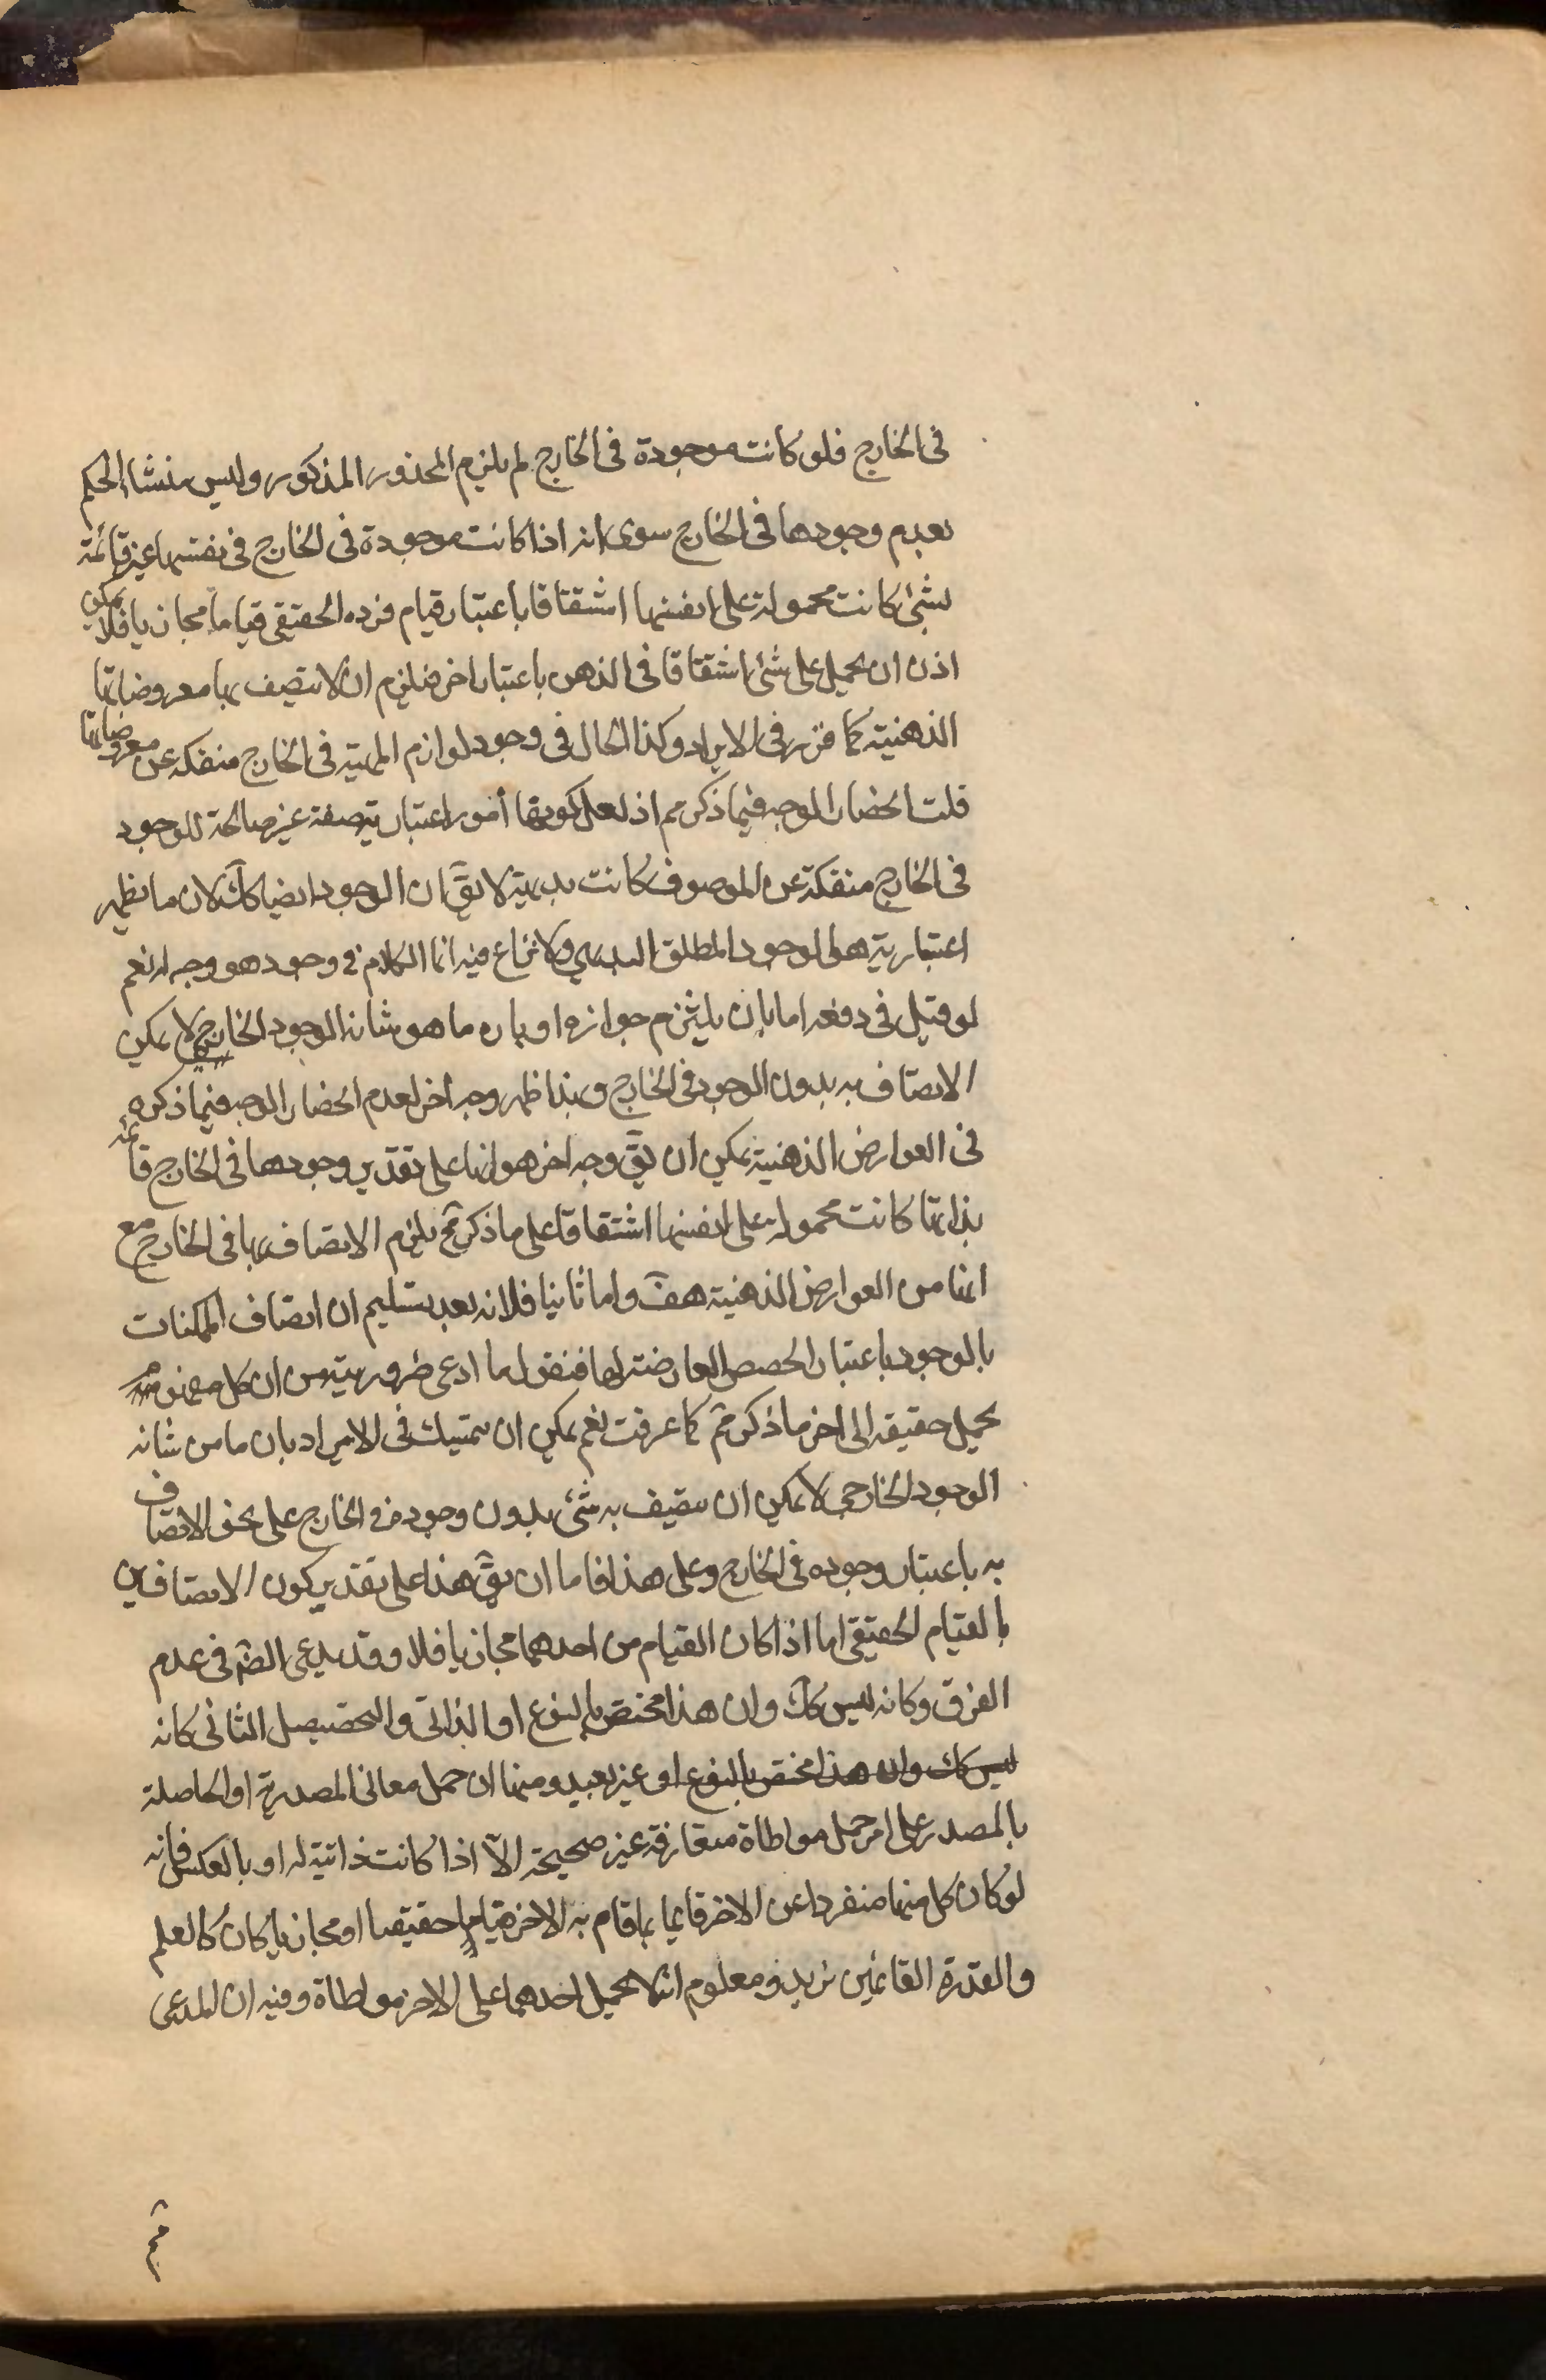 فى الخارج فلو كانت موجودة فى الخارج لم يلزم المحذور المذكور وليس منشاء الحكم
بعدم وجودها فى الخارج سوى انه اذا كانت موجودة فى الخارج فى نفسها غير قائمة
بشئ كانت محمولة على انفسها اشتقاقا باعتبار قيام فرده الحقيقى قياما مجازيا فلا يمكن
اذن ان يحمل على شئ اشتقاقا فى الذهن باعتبار اخر فيلزم ان لا يتصف بها معروضاتها
الذهنية كما قرر فى الايراد وكذا الحال فى وجود لوازم المهية فى الخارج منفكة عن معروضاتها
قلت انحصار الوجه فيما ذكر مم اذ لعل كونها أمور اعتبارية صفة غير صالحة للوجود
فى الخارج منفكة عن الموصوف كانت بديهية لا يق ان الوجود ايضا كك لان ما يظهر
اعتباريته هو الوجود المطلق البديهي ولا نزاع فيه انما الكلام فى وجود هو وجه له نعم
لو قيل فى دفعه اما بان يلتزم جوازه او بان ما هو شانه الوجود الخارجى لا يمكن
الاتصاف به بدون الوجود فى الخارج وبهذا ظهر وجه اخر لعدم انحصار الوجه فيما ذكره
فى العوارض الذهنية يمكن ان يق وجه اخر هو انها على تقدير وجودها فى الخارج قائمة
بذاتها كانت محمولة على انفسها اشتقاقا على ما ذكر فح يلزم الاتصاف بها فى الخارج مع
انها من العوارض الذهنية هف واما ثانيا فلانه بعد تسليم ان اتصاف الممكنات
بالوجود باعتبار الحصص العارضة لها فنقول ما ادعى ضروريته من ان كل مفهوم
يحمل حقيقة الى اخر ما ذكر مم كما عرفت نعم يمكن ان يتمسك فى الايراد بان ما من شانه
الوجود الخارجى لا يمكن ان يتصف به شئ بدون وجوده فى الخارج على نحو الاتصاف
به باعتبار وجوده فى الخارج وعلى هذا فاما ان يق هذا على تقدير كون الاتصافين
بالقيام الحقيقى اما اذا كان القيام من احدهما مجازيا فلا وقد يدعى الضر فى عدم
الفرق وكانه ليس كك وان هذا مختص بالنوع او الذاتى والتخصيص الثانى كانه
ليس كك وان هذا مختص بالنوع او غير بعيد ومنها ان حمل معانى المصدرية او الحاصلة
بالمصدر على امر حمل مواطاة متعارفة غير صحيحة الا اذا كانت ذاتية له او بالعكس فانه
لو كان كل منهما منفردا عن الاخر قائما بما قام به الاخر قياما حقيقيا او مجازيا كان كالعلم
والقدرة القائمين بزيد ومعلوم انه لا يحمل احدهما على الاخر مواطاة وفيه ان المدعى
مم